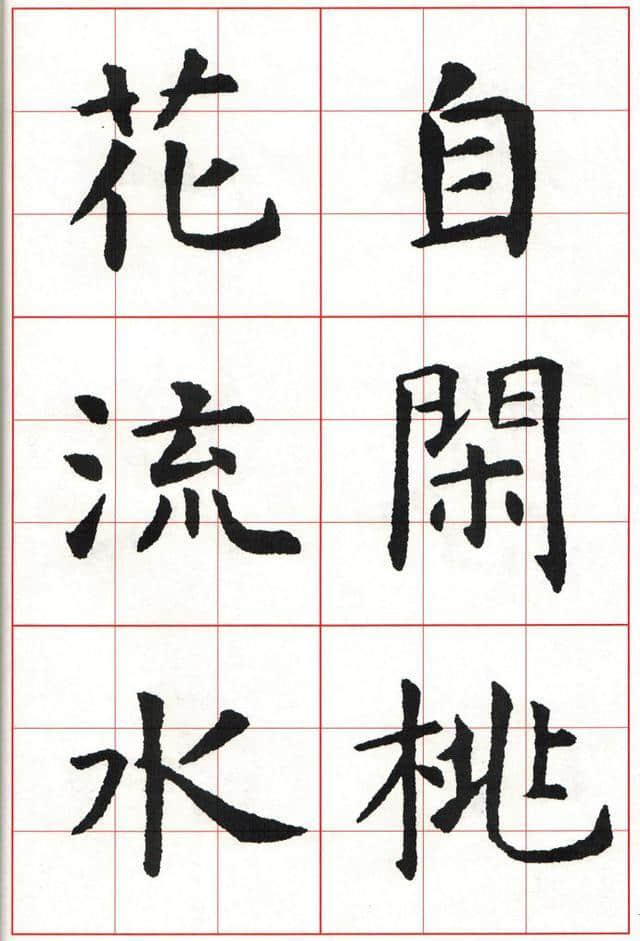 自閑桃
花流水